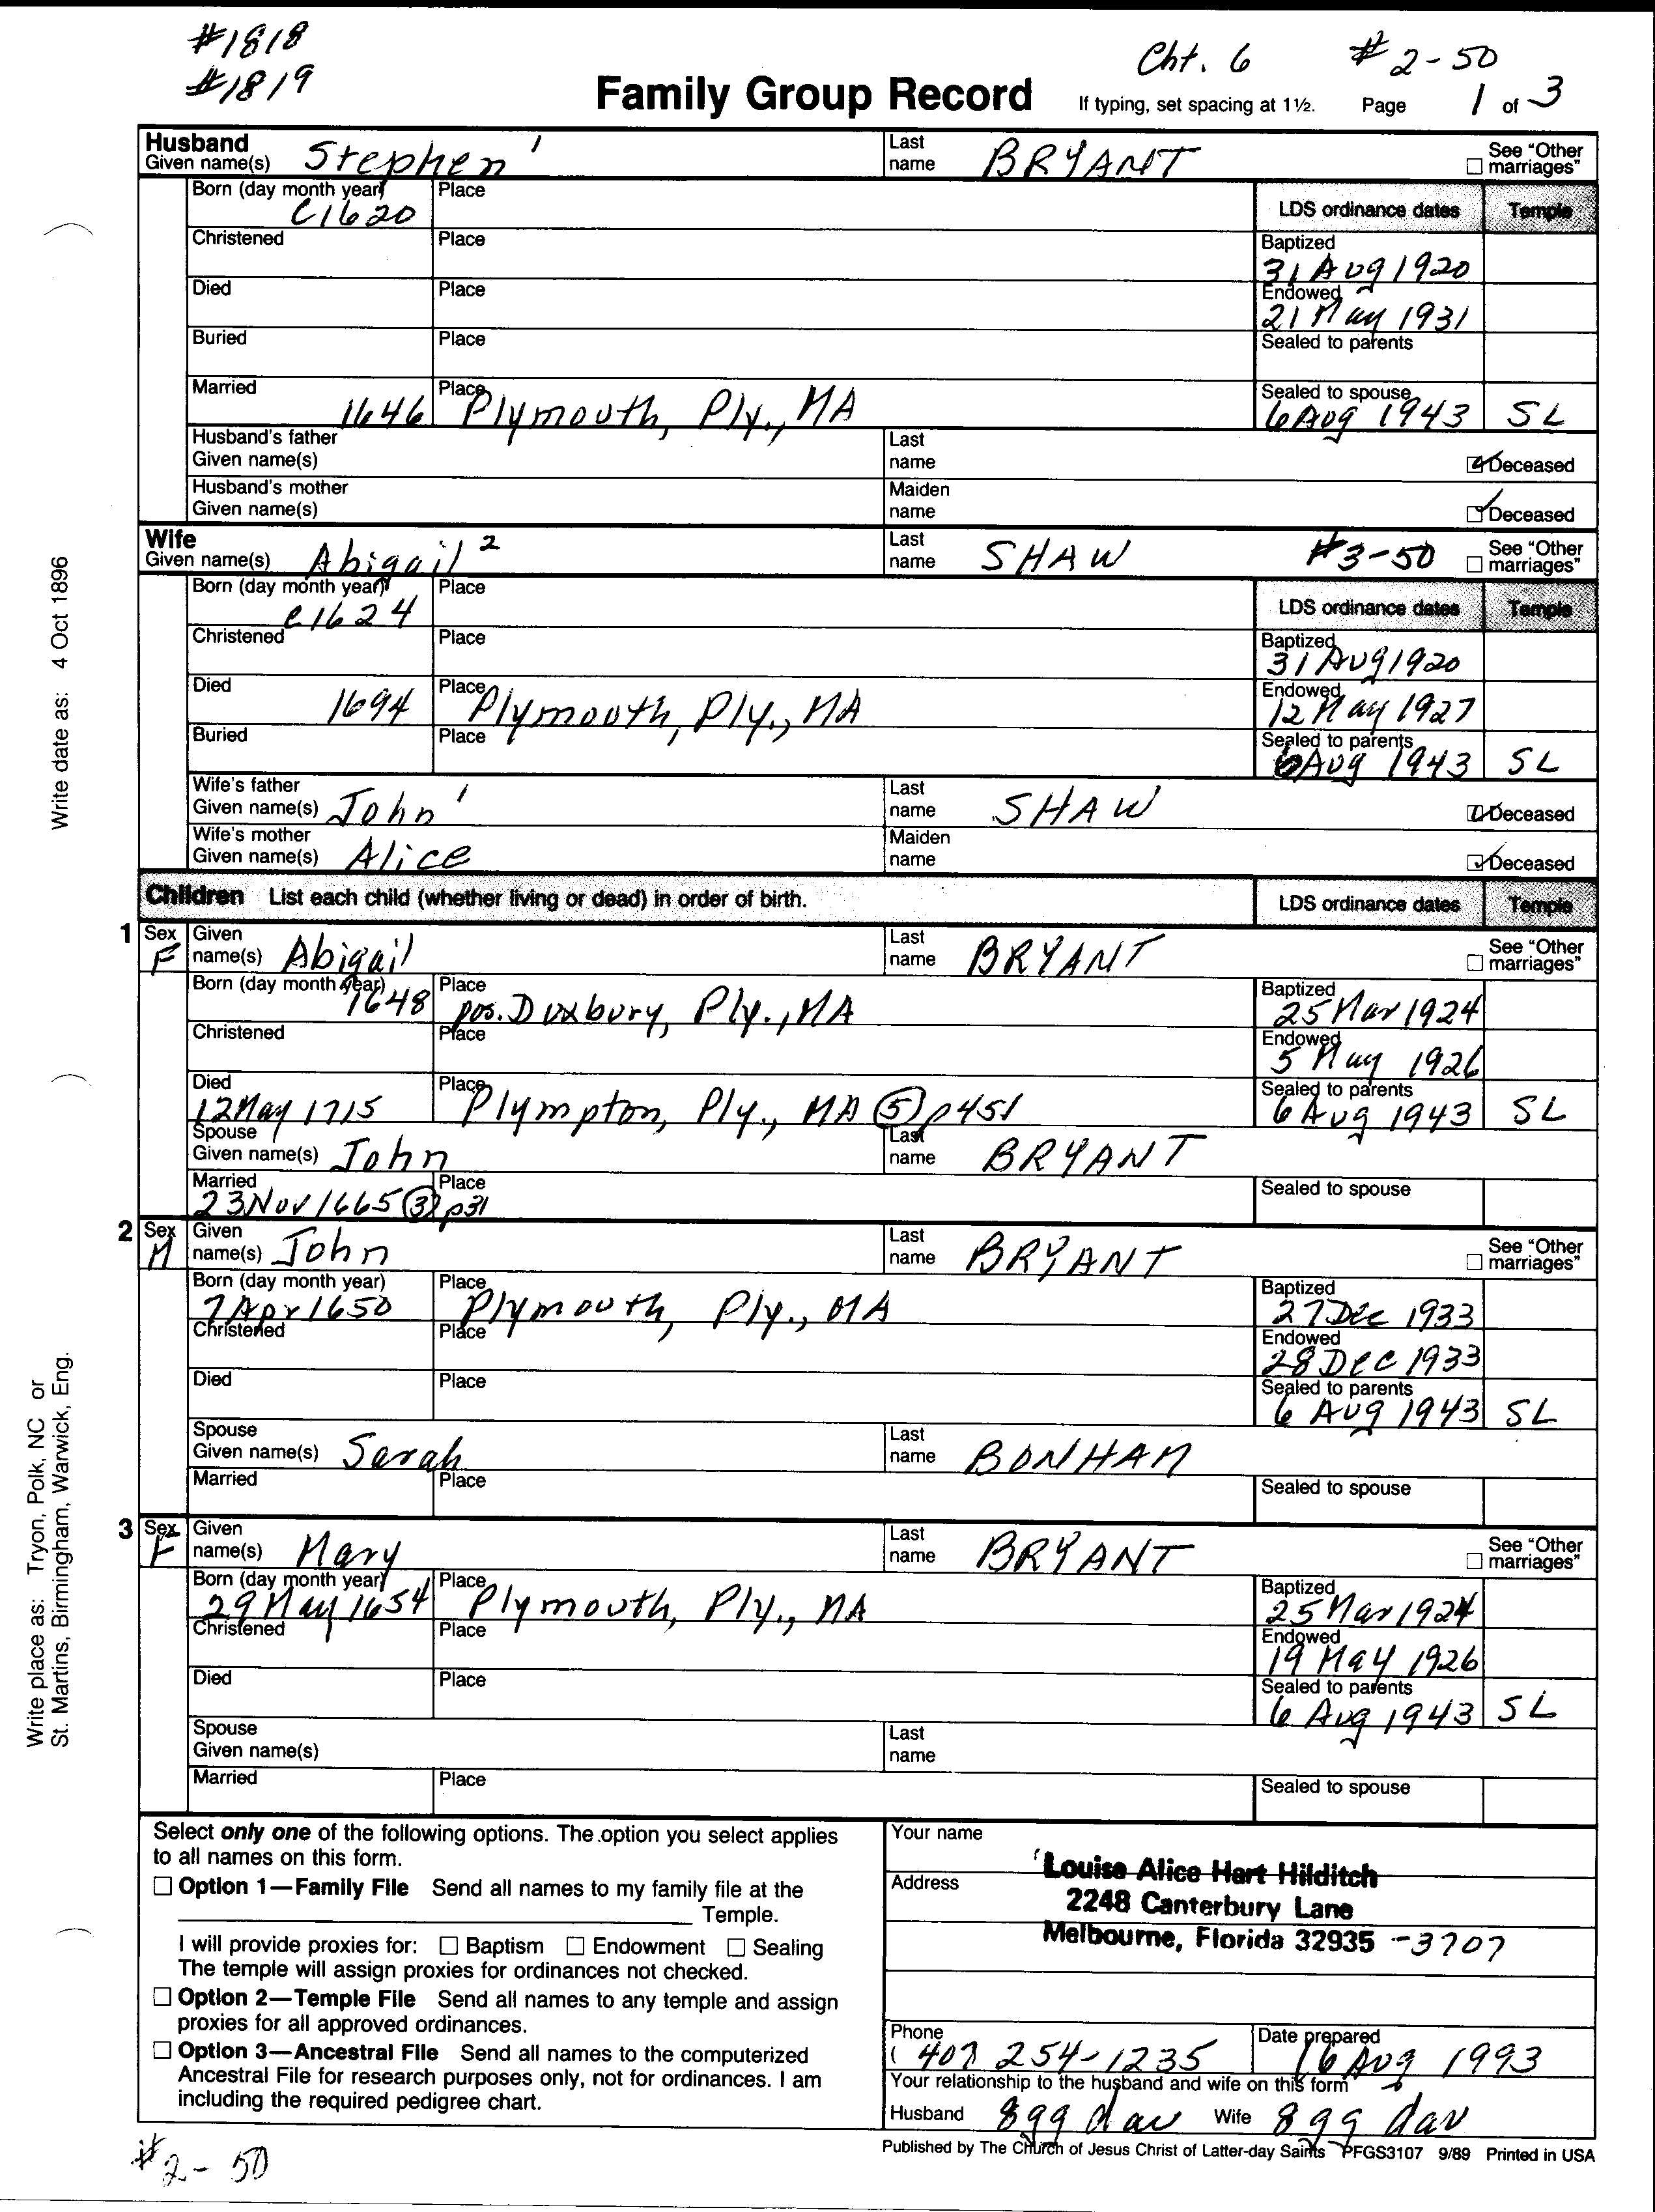 #1818
#1819
Cht. 6 # 2-50
Family Group Record If typing, set spacing at 1½. Page 1 of 3
Husband
Given name(s) Stephen 1 Last name BRYANT See "Other marriages"
Born (day month year) C1620 Place LDS ordinance dates Temple
Christened Place Baptized 31 Aug 1920
Died Place Endowed 21 May 1931
Buried Place Sealed to parents
Married 1646 Place Plymouth, Ply., MA Sealed to spouse 6 Aug 1943 SL
Husband's father Given name(s) Last name Deceased
Husband's mother Given name(s) Maiden name Deceased
Wife
Given name(s) Abigail 2 Last name SHAW #3-50 See "Other marriages"
Born (day month year) C1624 Place LDS ordinance dates Temple
Christened Place Baptized 31 Aug 1920
Died 1694 Place Plymouth, Ply., MA Endowed 12 May 1927
Buried Place Sealed to parents 6 Aug 1943 SL
Wife's father Given name(s) John 1 Last name SHAW Deceased
Wife's mother Given name(s) Alice Maiden name Deceased
Children List each child (whether living or dead) in order of birth. LDS ordinance dates Temple
1 Sex F Given name(s) Abigail Last name BRYANT See "Other marriages"
Born (day month year) 1648 Place pos. Duxbury, Ply., MA Baptized 25 Mar 1924
Christened Place Endowed 5 May 1926
Died 12 May 1715 Place Plympton, Ply., MA (5) p451 Sealed to parents 6 Aug 1943 SL
Spouse Given name(s) John Last name BRYANT
Married 23 Nov 1665 (32) p31 Place Sealed to spouse
2 Sex M Given name(s) John Last name BRYANT See "Other marriages"
Born (day month year) 7 Apr 1650 Place Plymouth, Ply., MA Baptized 27 Dec 1933
Christened Place Endowed 28 Dec 1933
Died Place Sealed to parents 6 Aug 1943 SL
Spouse Given name(s) Sarah Last name BONHAM
Married Place Sealed to spouse
3 Sex F Given name(s) Mary Last name BRYANT See "Other marriages"
Born (day month year) 29 May 1654 Place Plymouth, Ply., MA Baptized 25 Mar 1924
Christened Place Endowed 19 May 1926
Died Place Sealed to parents 6 Aug 1943 SL
Spouse Given name(s) Last name
Married Place Sealed to spouse
Select only one of the following options. The option you select applies
to all names on this form.
Option 1—Family File Send all names to my family file at the
Temple.
I will provide proxies for: Baptism Endowment Sealing
The temple will assign proxies for ordinances not checked.
Option 2—Temple File Send all names to any temple and assign
proxies for all approved ordinances.
Option 3—Ancestral File Send all names to the computerized
Ancestral File for research purposes only, not for ordinances. I am
including the required pedigree chart.
Your name Louise Alice Hart Hilditch
Address 2248 Canterbury Lane
Melbourne, Florida 32935 -3707
Phone ( 407 254-1235 Date prepared 16 Aug 1993
Your relationship to the husband and wife on this form
Husband 8gg dau Wife 8gg dau
Published by The Church of Jesus Christ of Latter-day Saints PFGS3107 9/89 Printed in USA
# 2- 50
Write date as: 4 Oct 1896
Write place as: Tryon, Polk, NC or
St. Martins, Birmingham, Warwick, Eng.